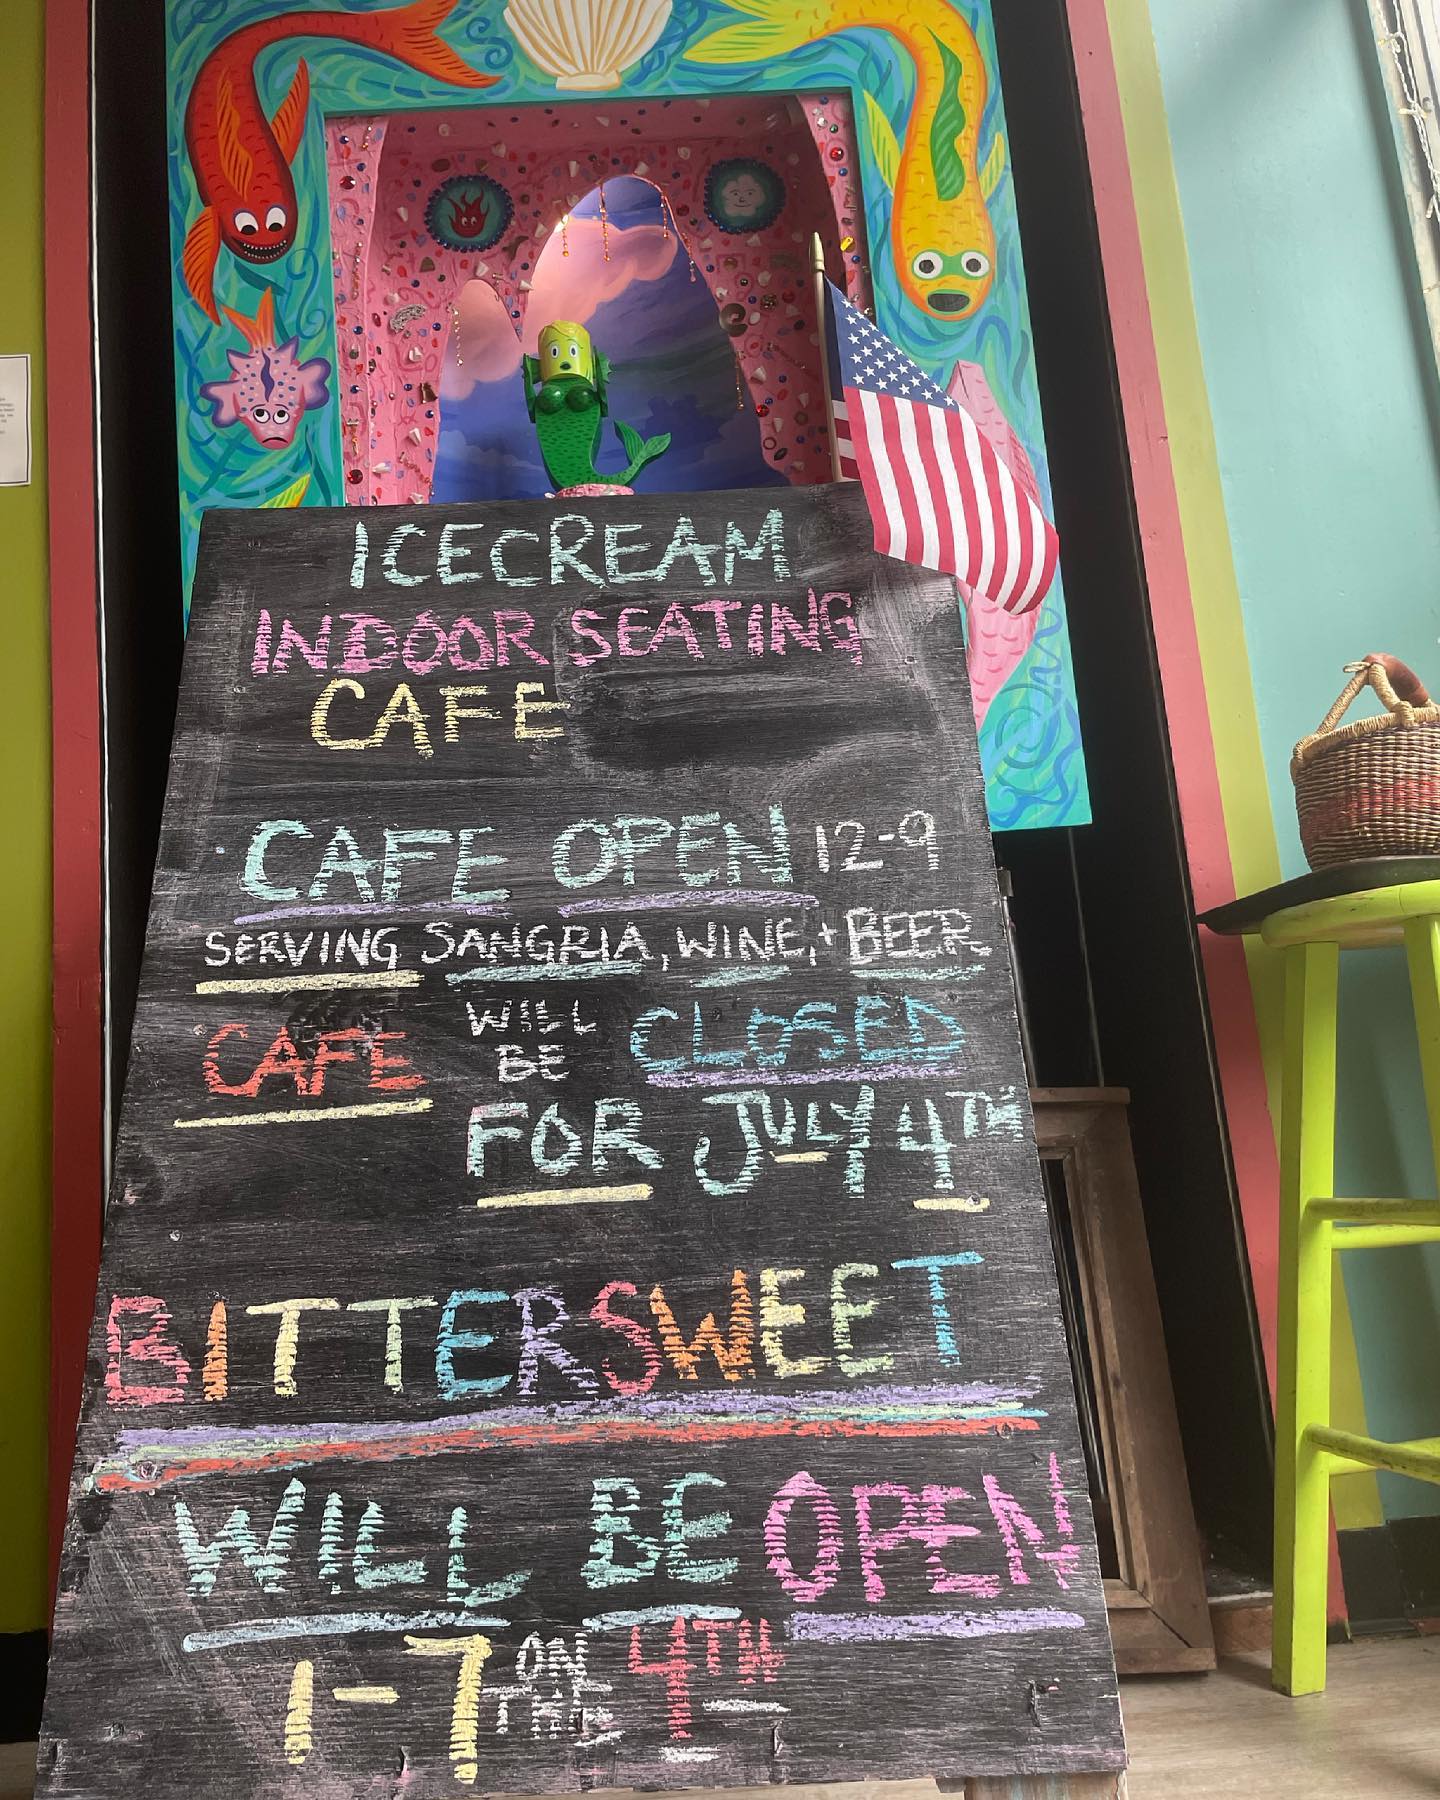 ICECREAM
INDOOR SEATING
CAFE
CAFE OPEN 12-9
SERVING SANGRIA, WINE, + BEER
CAFE WILL BE CLOSED
FOR JULY 4TH
BITTERSWEET
WILL BE OPEN
1-7 ON THE 4TH